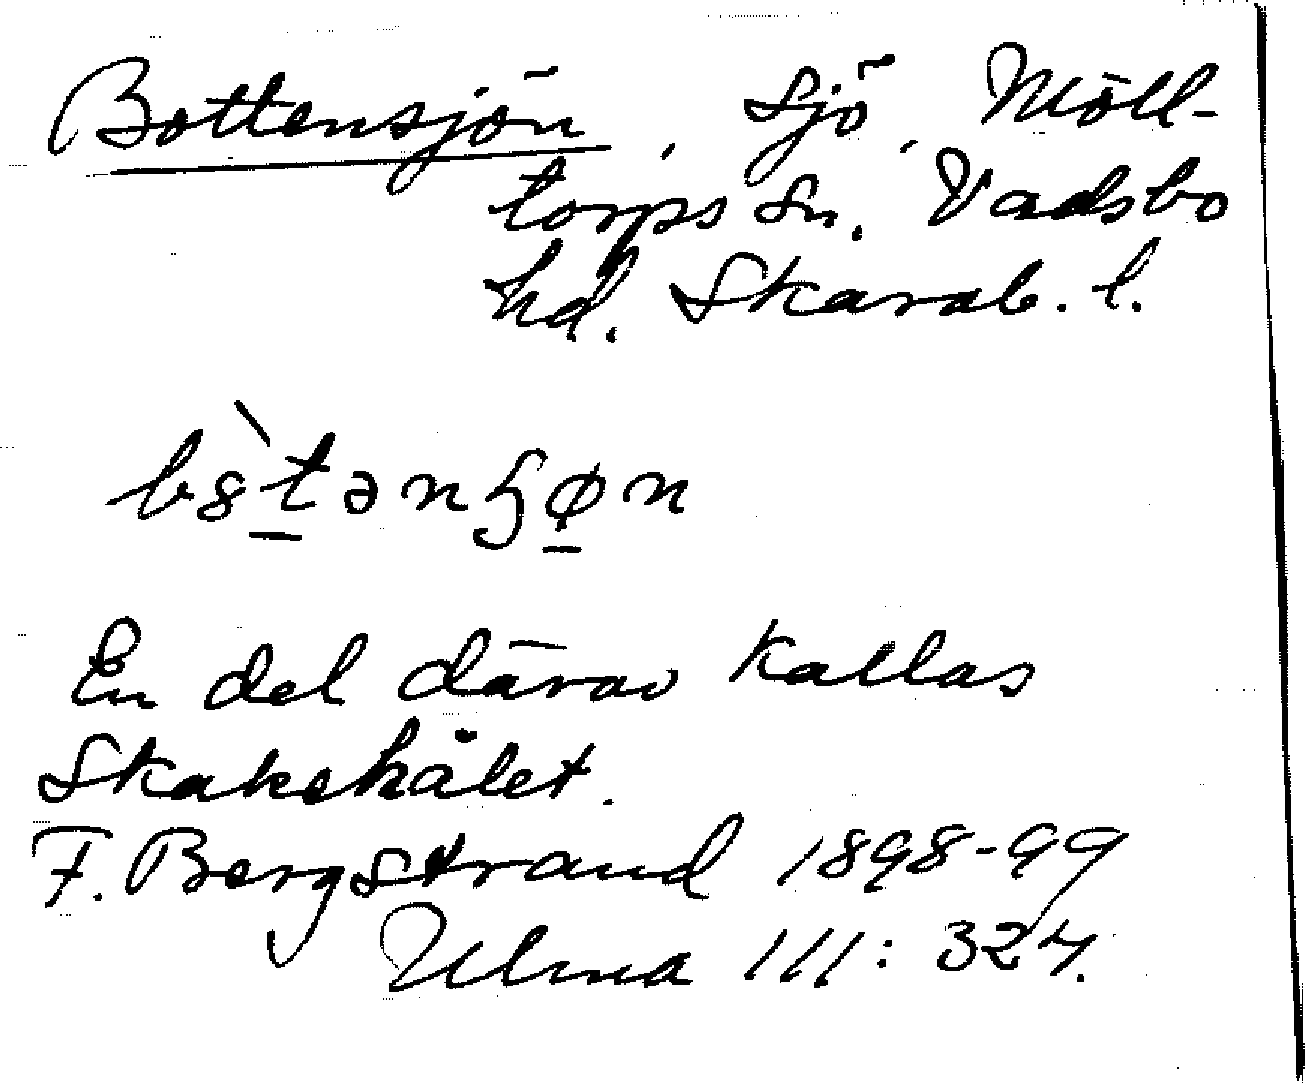 Bottensjön, sjö, Möll-
torps sn. Vadsbo
hd. Skarab. l.
b8̀t̲ənɧø̲n
En del därav kallas
Skakehålet.
F. Bergstrand 1898-99
Ulma 111: 324.